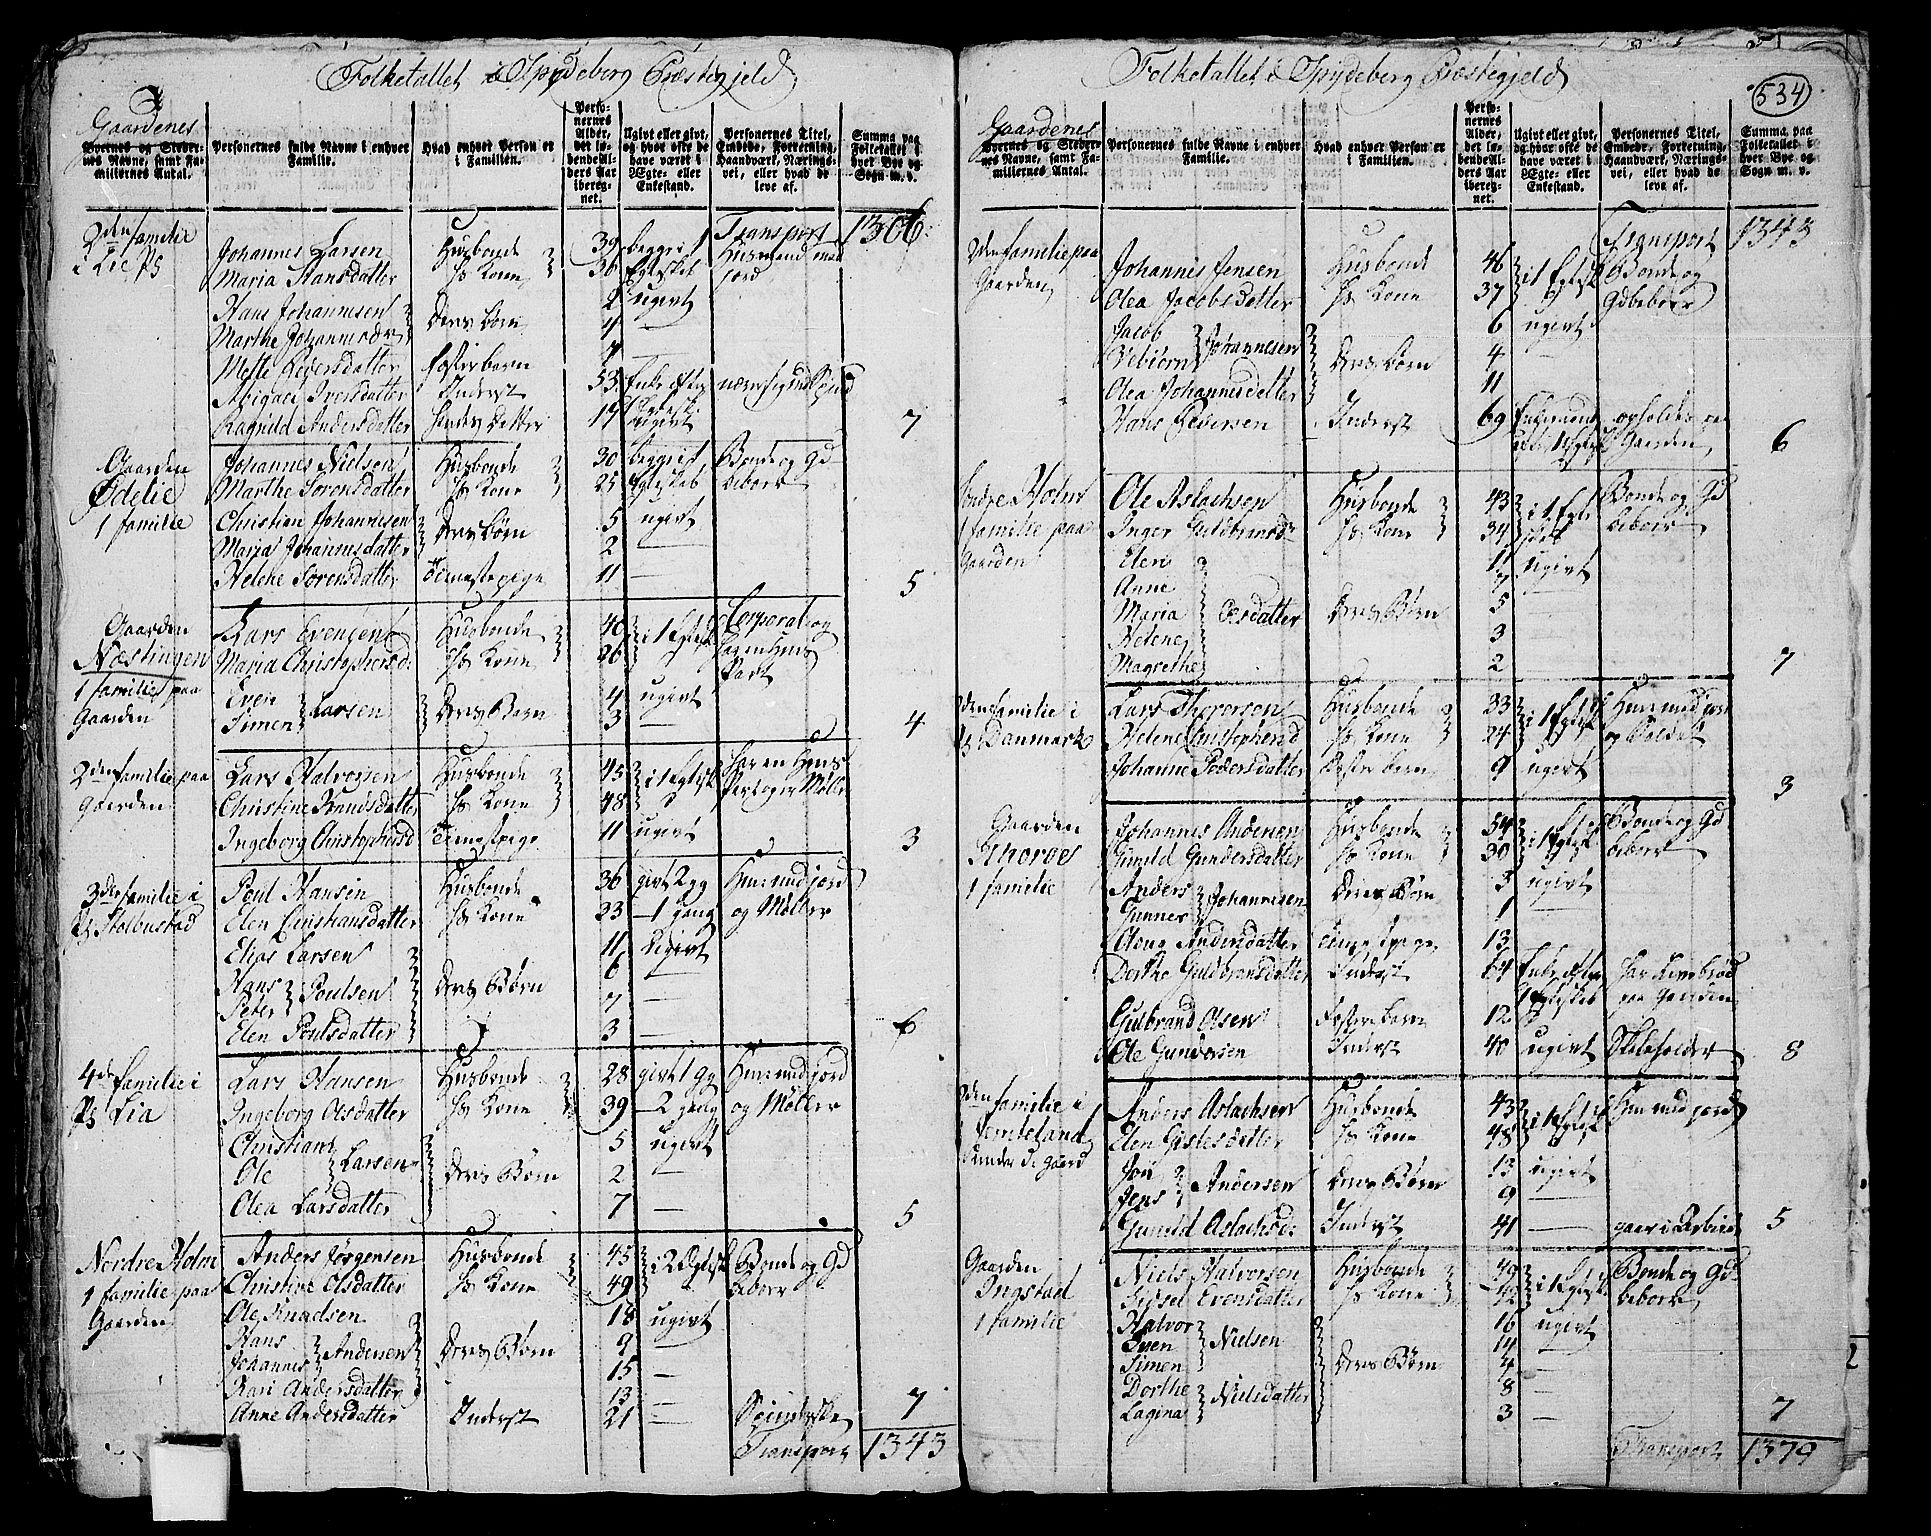 Folketallet i Spydeberg Præstegjeld
Gaardenes
Byernes og Stedernes Navne, samt Familiernes Antal.
Personernes fulde Navne i enhver Familie.
Hvad enhver Person er i Familien.
Personernes Alder, det løbende Alders Aar iberegnet.
Ugivt eller givt, og hvor ofte de have været i Ægte- eller Enkestand.
Personernes Titel, Embede, Forretning, Haandværk, Næringsvei, eller hvad de leve af.
Summa paa Folketallet i hver Bye og Sogn m. v.
Transport 1306
2den familie
i Lie Ps
Johannes Larsen Husbonde 39 begge i 1 Husmand med
Maria Hansdatter hs Kone 36 Egteskab jord
Hans Johannesen 2 ugivt
Marthe Johannesdr Deres børn 4 —
Mette Pedersdatter Fosterbarn 7 —
Abigael Iversdatter Inderst 53 Enke efter
Ragnild Andersdatter hendes Datter 17 ugivt 7
Gaarden
Ødelie
1 familie
Johannes Nielsen Husbonde 30 begge i 1 Bonde og Gd
Marthe Sorensdatter hs Kone 25 Egteskab beboer
Christian Johannesen 5 ugivt
Maria Johannisdatter Deres børn 2 —
Helene Sorensdatter Tienestepige 11 — 5
Gaarden
Næstingen
1 familie paa
Gaarden
Lars Evensen Husbonde 40 i 1 Egtesk Corporal og
Maria Christophersd: hs Kone 26 har en Huus Part
Even
Simen Larsen Deres Børn 4 ugivt
3 — 4
2den familie paa
Gaarden
Lars Halvorsen Husbonde 45 i 1 Egtesk har en Huus
Christine Knudsdatter hs Kone 48 Part og er Møller
Ingeborg Christophersd Tienestepige 11 ugivt 3
3die familie i
Ps Stolbustad
Poul Hansen Husbonde 36 givt 2 gg Huus med jord
Elen Christiansdatter hs Kone 33 — 1 gang og Møller
Elias Larsen 11 Ugivt
Hans
Peter Poulsen Deres Børn 6 —
7 —
Elen Poulsdatter 3 — 6
4de familie i
Ps Lia
Lars Hansen Husbonde 28 givt 1 gg Huus med jord
Ingeborg Olsdatter hs Kone 39 — 2 gang og Møller
Christian 5 ugivt
Ole Larsen Deres Børn 2 —
Olea Larsdatter 7 — 5
Nordre Holm
1 familie paa
Gaarden
Anders Jørgensen Husbonde 45 i 2 Egtesk Bonde og Gd
Christine Olsdatter hs Kone 49 beboer
Ole Knudsen 18 ugivt
Hans 9 —
Johannes Andersen Deres Børn 15 —
Kari Andersdatter 13 —
Anne Andersdatter Inderst 21 — 7
Transport 1343
Folketallet i Spydeberg Præstegjeld
534
Gaardenes
Byernes og Stedernes Navne, samt Familiernes Antal.
Personernes fulde Navne i enhver Familie.
Hvad enhver Person er i Familien.
Personernes Alder, det løbende Alders Aar iberegnet.
Ugivt eller givt, og hvor ofte de have været i Ægte- eller Enkestand.
Personernes Titel, Embede, Forretning, Haandværk, Næringsvei, eller hvad de leve af.
Summa paa Folketallet i hver Bye og Sogn m. v.
Transport 1343
2den familie paa
Gaarden
Johannis Jensen Husbonde 46 i 1 Egtesk Bonde og
Olea Jacobsdatter hs Kone 37 Gdbeboer
Jacob 6 ugivt
Vebiørn Johannesen Deres Børn 4 —
Olea Johannisdatter 11
Hans Pedersen Inderst 69 Enkemand opholdes paa
Gaarden 6
Søndre Holm
1 familie paa
Gaarden
Ole Aslachsen Husbonde 43 i 1 Egte Bonde og Gd
Inger Guldbransdr hs Kone 34 skab beboer
Elen 11 ugivt
Anne 7
Maria Olsdatter Deres Børn 5
Helene 3
Magrethe 2 7
2den familie i
Ps Danmark
Lars Thorersen Husbonde 33 i 1 Egtesk Huus med jord
Helene Christophersd hs Kone 24 og Soldat
Johanne Pedersdatter Foster barn 9 ugivt 3
Gaarden
1 familie
Johannes Andersen Husbonde 54 i 1 Egtesk Bonde og Gd
Gunild Gundersdatter hs Kone 30 beboer
Anders 3 ugivt
Gunner Johannisen Deres Børn 1 —
Andersdatter Tienestepige 13
Dorthe Guldbransdatter Inderst 64 Enke efter har Livebrød
1 Egteskab paa Gaarden
Gulbrand Olsen Foster barn 12
Ole Gundersen Inderst 40 ugivt Skoleholder 8
2den familie i
Jemteland
under ds Gaard
Anders Aslachsen Husbonde 43 i 1 Egtesk Huus med jord
Elen Gislesdatter hs Kone 48
Jon 13 ugivt
Jens Andersen Deres Børn 9 —
Gunild Aslachsd: Inderst 41 — gaar i Arbeide 5
Gaarden
Ingstad
1 familie
Niels Halvorsen Husbonde 49 i 1 Egtesk Bonde og Gd
Sidsel Evensdatter hs Kone 42 beboer
Halvor 16 ugivt
Even Nielsen 14 —
Simen Deres Børn 4 —
Dorthe Nielsdatter 8 —
Lagina 3 — 7
Transport 1379